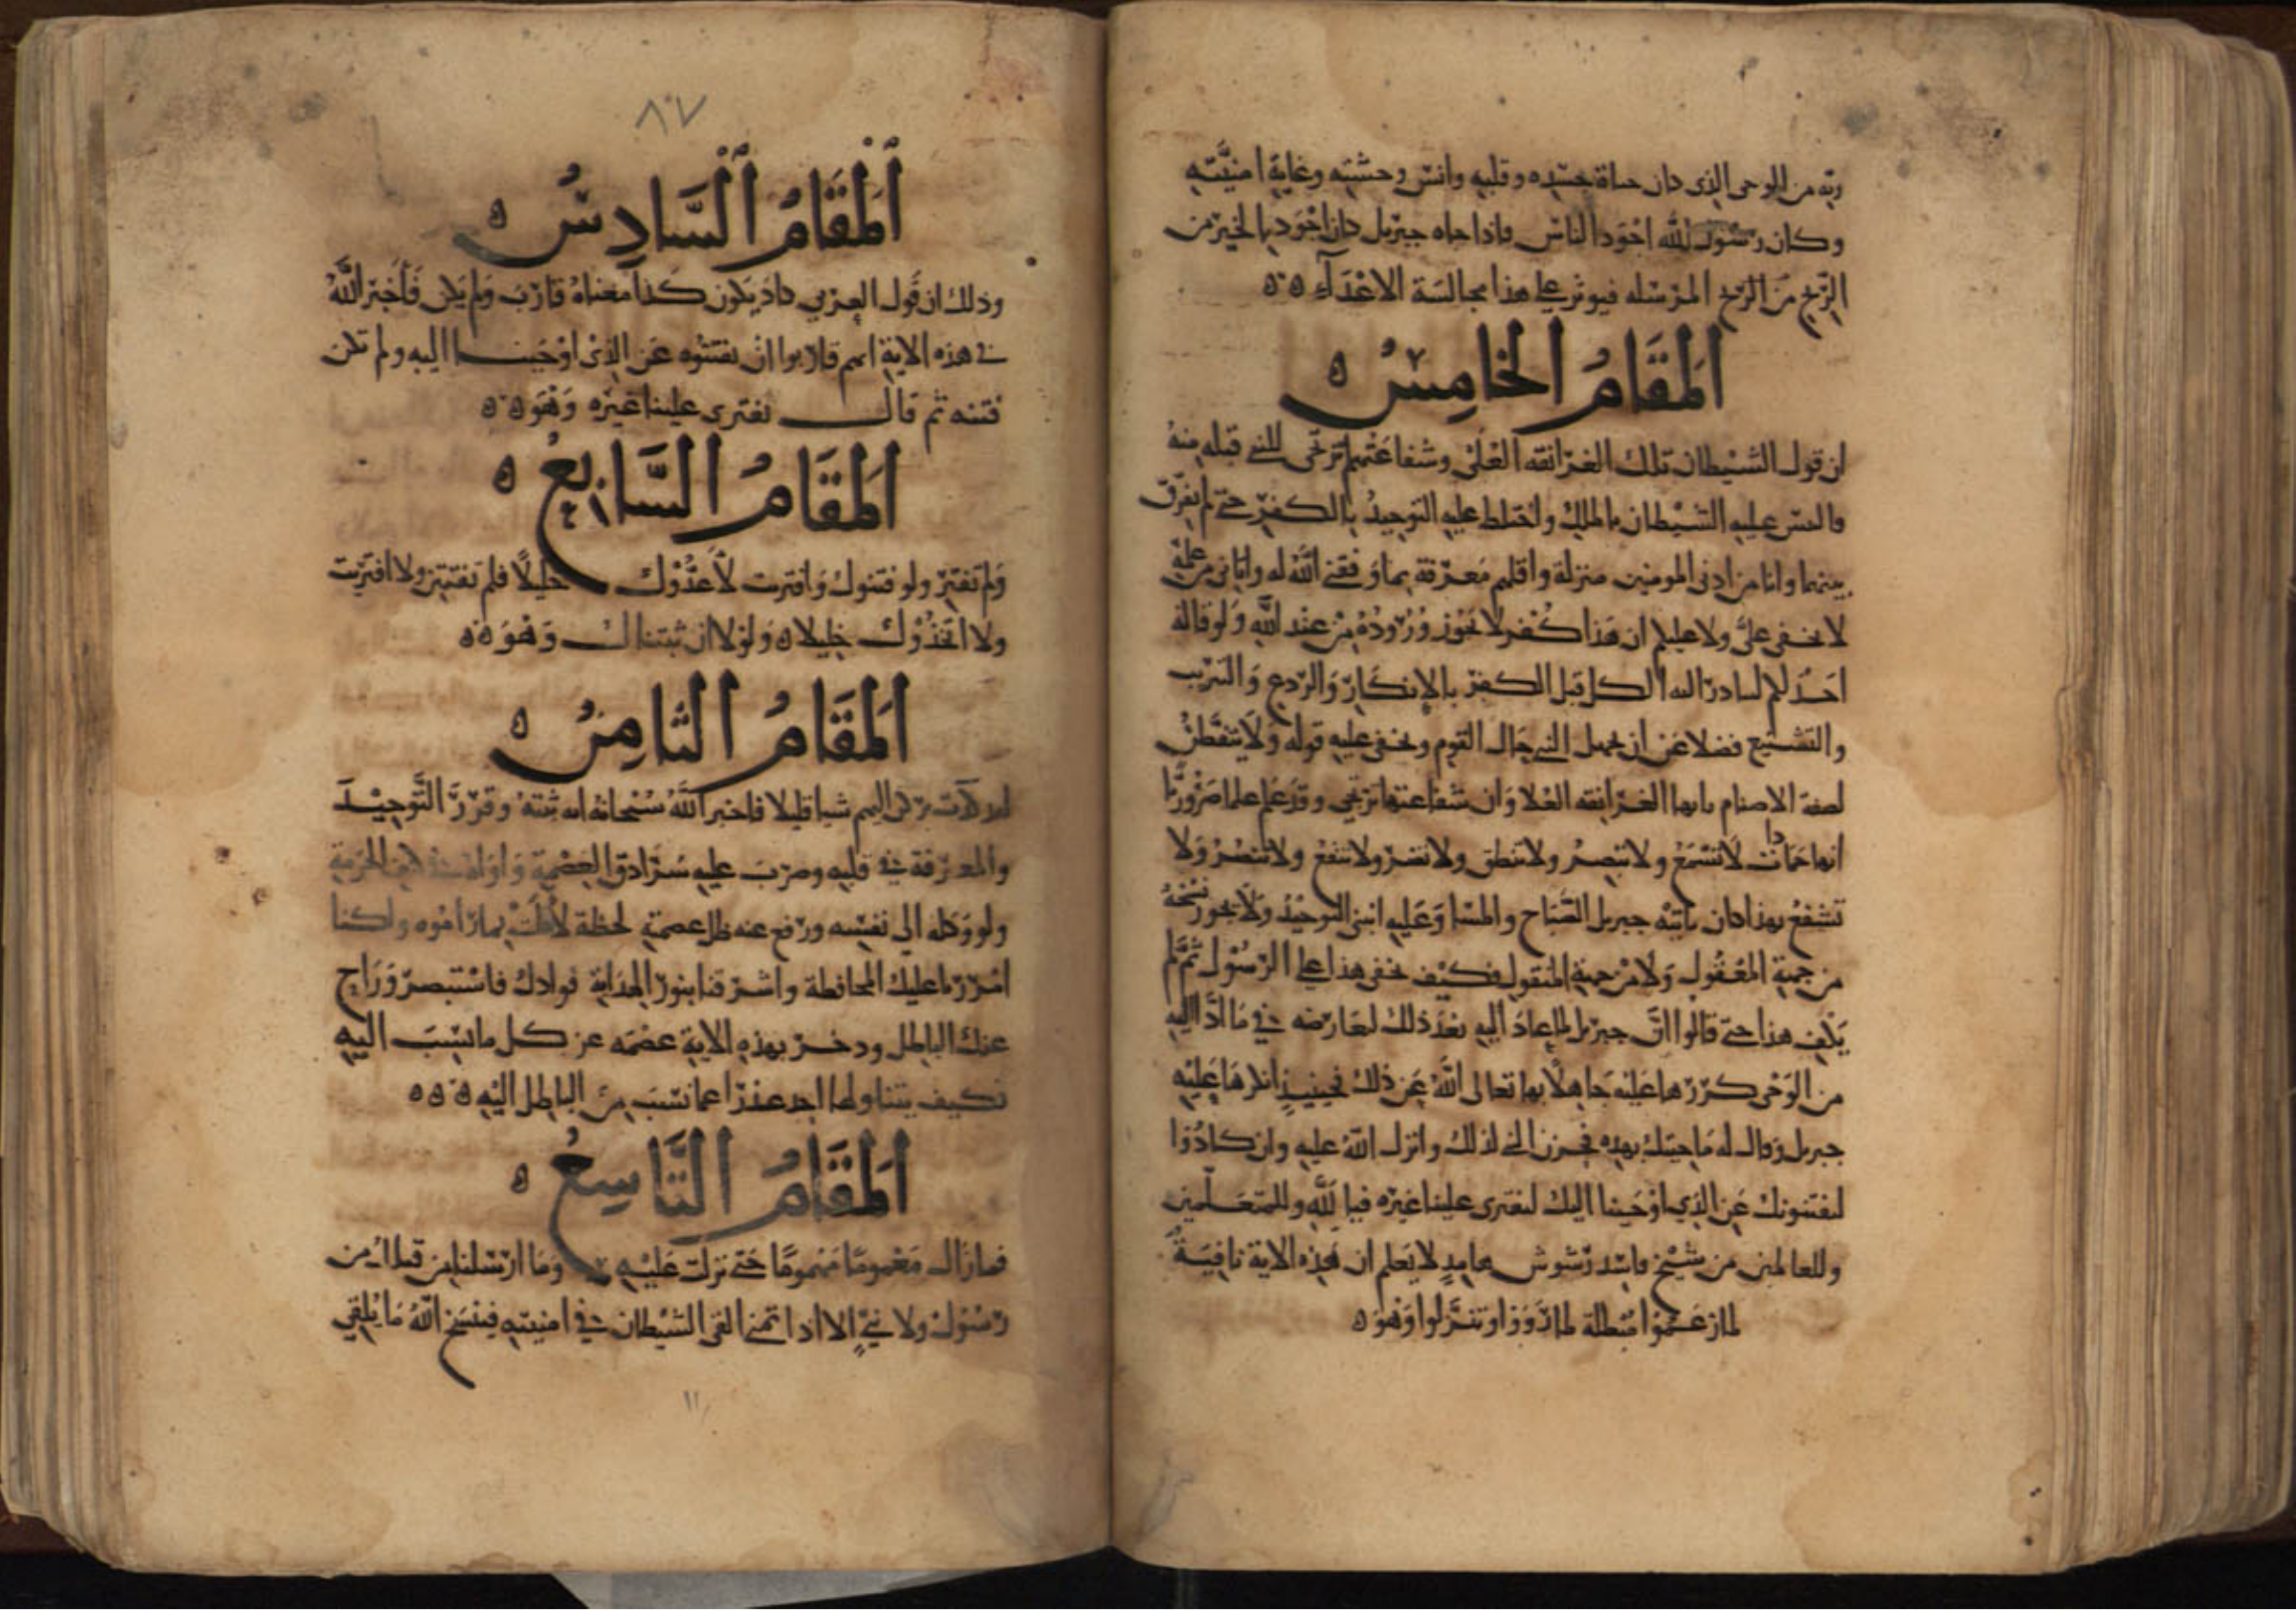 ربه من الوحي الذي كان حياة جسده وقلبه وانس وحشته وغاية امنيته
وكان رسول الله اجود الناس فاذا جاه جبريل كان اجود بالخير من
الريح من الريح المرسله فيوثر على هذا مجالسة الاعداء
المقام الخامس
ان قول الشيطان تلك الغرانقه العلى وشفاعتهم ترتجى للنبي قبله منه
فالتبس عليه الشيطان بالملك واختلط عليه التوحيد بالكفر حتى لم يفرق
بينهما وانا من ادنى المومنين منزلة واقلهم معرفة بما وفقني الله له واتاني من علمه
لا يخفى علي ولا عليكم ان هذا كفر لا يجوز وروده من عند الله ولو قاله
احد لكم لبادر اليه الكل قبل الكفر بالانكار والردع والتثريب
والتشنيع فضلا عن ان يجهل النبي حال القوم ويخفى عليه قوله ولا يتفطن
لصفة الاصنام بانها الغرانقه العلا وان شفاعتها ترتجى وقد علم علما ضروريا
انها جمادات لا تسمع ولا تبصر ولا تنطق ولا تضر ولا تنفع ولا تنصر ولا
تشفع بهذا كان ياتيه جبريل الصباح والمسا وعليه انبنى التوحيد ولا يجوز نسخه
من جهة المعقول ولا من جهة المنقول فكيف يخفى هذا على الرسول ثم لم
يكف هذا حتى قالوا ان جبريل لما عاد اليه بعد ذلك ليعارضه في ما ادا اليه
من الوحي كررها عليه جاهلا بها تعالى الله عن ذلك فحينيذ انكرها عليه
جبريل وقال له ما جيتك بهذه فحزن النبي لذلك وانزل الله عليه وان كادوا
ليفتنونك عن الذي اوحينا اليك لتفتري علينا غيره فيا لله وللمتعلمين
وللعالمين من شيخ فاسد وسوس هامد لا يعلم ان هذه الاية نافية
لما زعموا مبطلة لما رووا وتقولوا وهو
٨٧
المقام السادس
وذلك ان قول العربي كاد يكون كذا معناه قارب ولم يكن فاخبر الله
في هذه الاية انهم قاربوا ان يفتنوه عن الذي اوحينا اليه ولم تكن
فتنه ثم قال لتفتري علينا غيره وهو
المقام السابع
ولم تفتر ولو فتنوك وافتريت لاتخذوك خليلا فلم تفتتن ولا افتريت
ولا اتخذوك خليلا ولولا ان ثبتناك وهو
المقام الثامن
لقد كدت تركن اليهم شيا قليلا فاخبر الله سبحانه انه ثبته وقرر التوحيد
والمعرفة في قلبه وضرب عليه سرادق العصمة واواه في كنف الحرمة
ولو وكله الى نفسه ورفع عنه ظل عصمته لحظة لالممت بما راموه ولكنا
امررنا عليك المحافظة واشرقنا بنور الهداية فوادك فاستبصر وراح
عنك الباطل ودحر بهذه الاية عصمه عن كل ما نسب اليه
فكيف يتناولها احد عذرا عما نسب من الباطل اليه
المقام التاسع
فما زال مغموما مهموما حتى نزلت عليه وما ارسلنا من قبلك من
رسول ولا نبي الا اذا تمنى القى الشيطان في امنيته فينسخ الله ما يلقي
١١